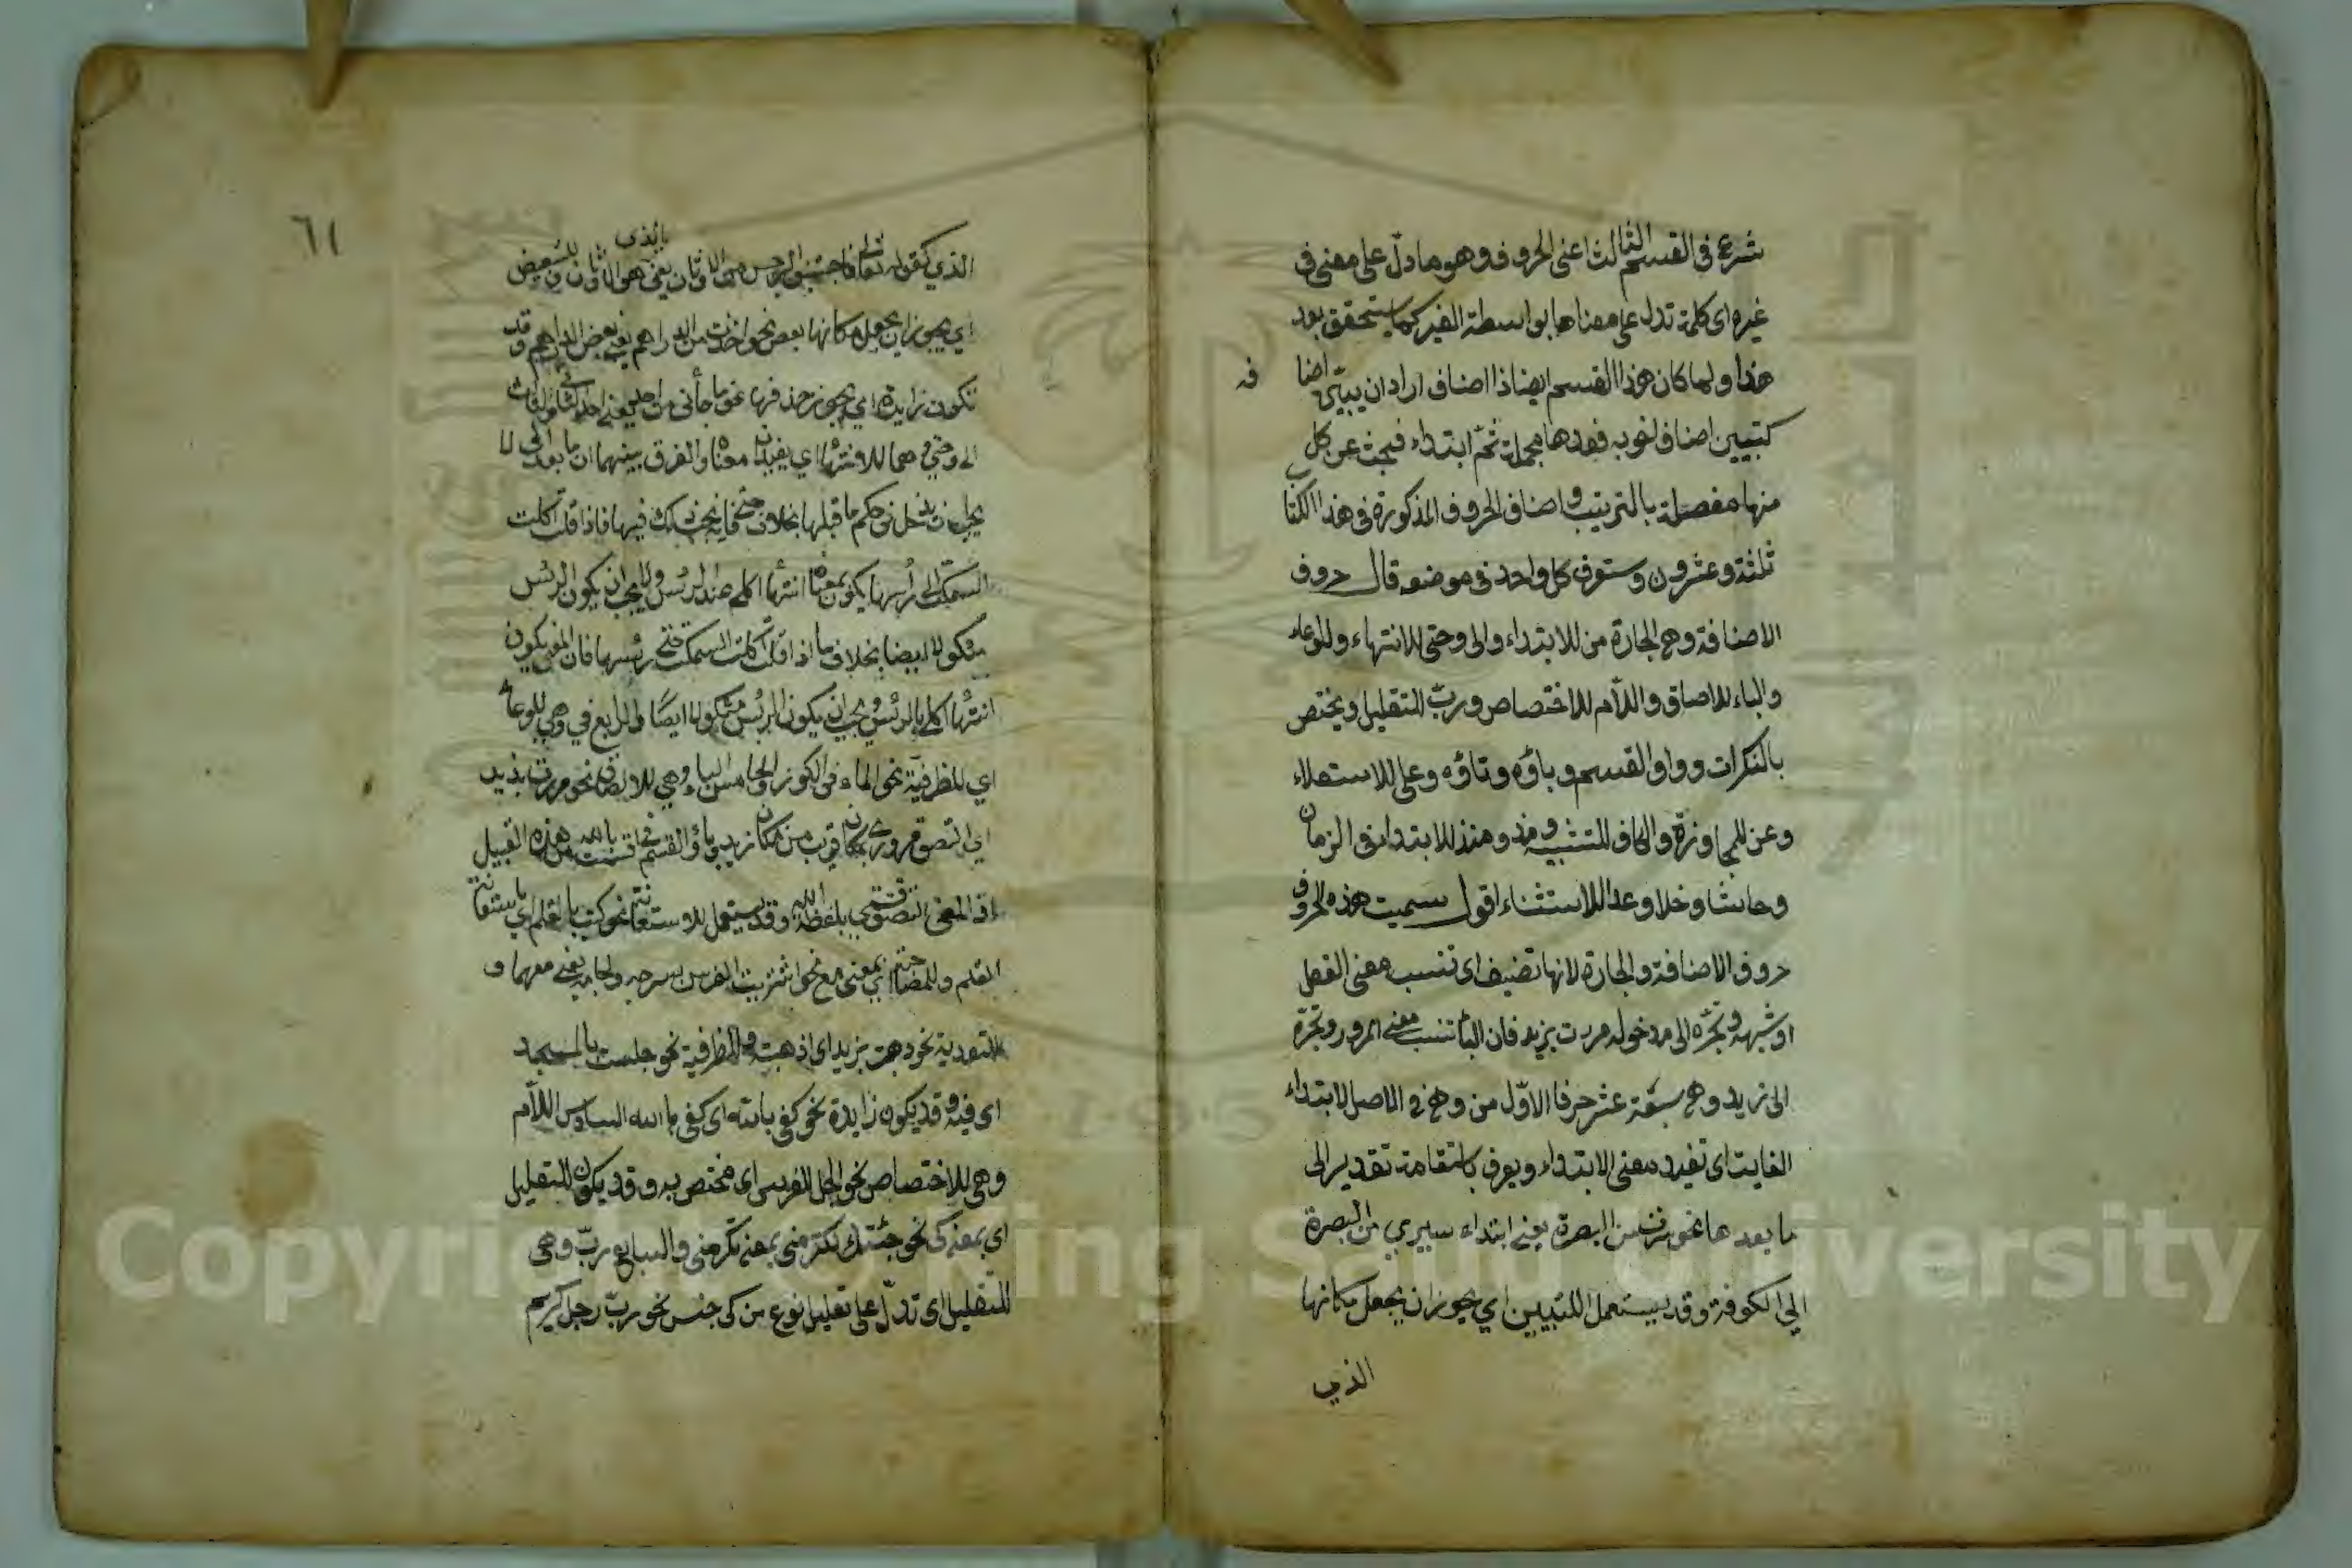 شرع فى القسم الثالث اعنى الحروف وهو ما دلّ على معنى فى
غيره اى كلمة تدل على معناها بواسطة الغير كما يستحقق بعد
هذا ولما كان هذا القسم ايضا ذا اصناف اراد ان يبيّن اصنا
فه
كتبيين اصناف لغوبه فعدها مجملة ثمّ ابتداء فبحث عن كل
منها مفصلة بالترتيب واصناف الحروف المذكورة فى هذا الكتا
ثلثة وعشرون وستعرف كل واحد فى موضعه قال حروف
الاضافة وهى الجارة من للابتداء والى وحتى للانتهاء وللوعاء
والباء للالصاق واللّام للاختصاص وربّ للتقليل ويختص
بالنكرات وواو القسم وباؤه وتاؤه وعلى للاستعلاء
وعن للمجاوزة والكاف للتشبيه ومذ ومنذ للابتداء فى الزمان
وحاشا وخلا وعدا للاستثناء اقول سميت هذه الحروف
حروف الاضافة والجارة لانها تضيف اى تنسب معنى الفعل
او شبهه وتجرّه الى مدخوله مررت بزيد فان الباء تنسب معنى المرور وتجرّه
الى زيد وهى سبعة عشر حرفا الاوّل من وهى فى الاصل لابتداء
الغايت اى تفيد معنى الابتداء ويعرف باستقامة تقدير الى
ما بعدها نحو سرت من البصرة يعنى ابتداء سيرى من البصرة
الى الكوفة وقد يستعمل للتبيين اي يجوز ان يجعل مكانها
الذي
٦١
بالذى
الذي كقوله تعالى فاجتنبوا الرجس من الاوثان يعنى هو الاوثان وللتبعيض
اي يجوز ان يجعل مكانها بعض نحو اخذت من الدراهم يعنى بعض الدراهم وقد
تكون زايدة اي يجوز حذفها نحو ما جأنى من احد يعنى احد الثانى والثالث
الى وحتى وهما للانتهاء اي يفيدان معناه والفرق بينهما ان ما بعد الى لا
يجب ان يدخل فى حكم ما قبلها بخلاف حتى فانه يجب ذلك فيها فاذا قلت اكلت
السمكة الى رأسها يكون معناه انتهاء اكلى عند الرئس ولا يجب ان يكون الرئس
مأكولا ايضا بخلاف ما اذا قلت اكلت السمكة حتى رئسها فان المعنى يكون
انتهاء اكلى بالرئس ويجب ان يكون الرئس مأكولا ايضًا والرابع في وهي للوعاء
اي للظرفيّة نحو الماء فى الكوز والخامس الباء وهي للالصاق نحو مررت بزيد
اي التصق مروري بمكان قريب من مكان زيد وباؤ القسم فى اقسمت بالله من هذه القبيل
اذ المعنى التصق قسمي بلفظة الله وقد يستعمل للاستعانة نحو كتبت بالقلم اي باستعانة
القلم وللمصاحبة اي بمعنى مع نحو اشتريت الفرس بسرجه ولجامه يعنى معهما و
للتعدية نحو ذهبت بزيد اى اذهبته وللظرفية نحو جلست بالمسجد
اى فيه وقد يكون زايدة نحو كفى بالله اى كفى الله السادس اللّام
وهى للاختصاص نحو الجل للفرس اى مختص به وقد يكون للتعليل
اي بمعنى كى نحو جئتك لتكرمنى بمعنى كى تكرمنى والسابع ربّ وهى
للتقليل اى تدلّ على تقليل نوع من كى جنس نحو ربّ رجل كريم
Copyright © King Saud University